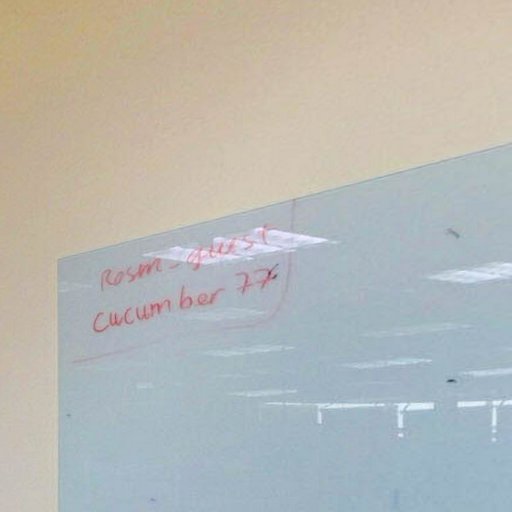 Rosm-guest
cucumber 77x